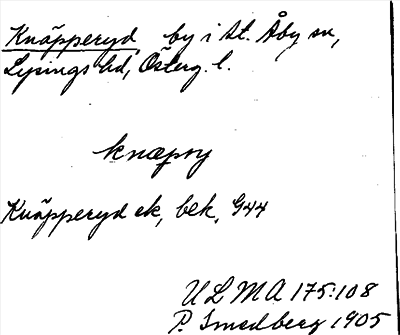 Knäpperyd by i St. Åby sn,
Lysings hd, Österg. l.
knæpry
Knäpperyd ek, bek, G44
ULMA 175:108
P. Smedberg 1905